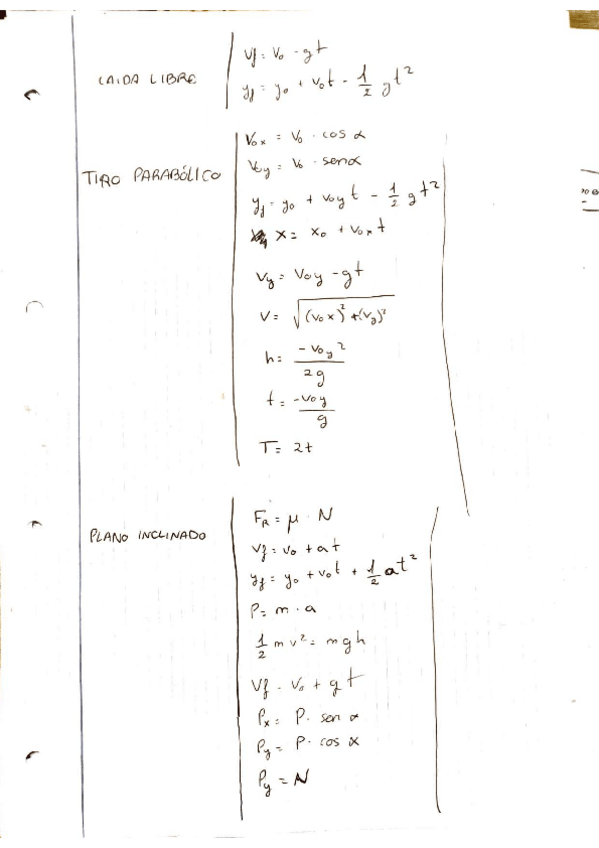 CAIDA LIBRE
vf = v₀ - gt
yf = y₀ + v₀t - 1/2 gt²
TIRO PARABÓLICO
V₀x = V₀ · cos α
V₀y = V₀ · senα
yf = y₀ + v₀y t - 1/2 gt²
x = x₀ + v₀x t
Vy = V₀y - gt
V = √((v₀x)² + (vy)²)
h = -v₀y² / 2g
t = -v₀y / g
T = 2t
PLANO INCLINADO
FR = μ · N
vf = v₀ + at
yf = y₀ + v₀t + 1/2 at²
P = m · a
1/2 m v² = mgh
Vf = V₀ + gt
Px = P · sen α
Py = P · cos α
Py = N